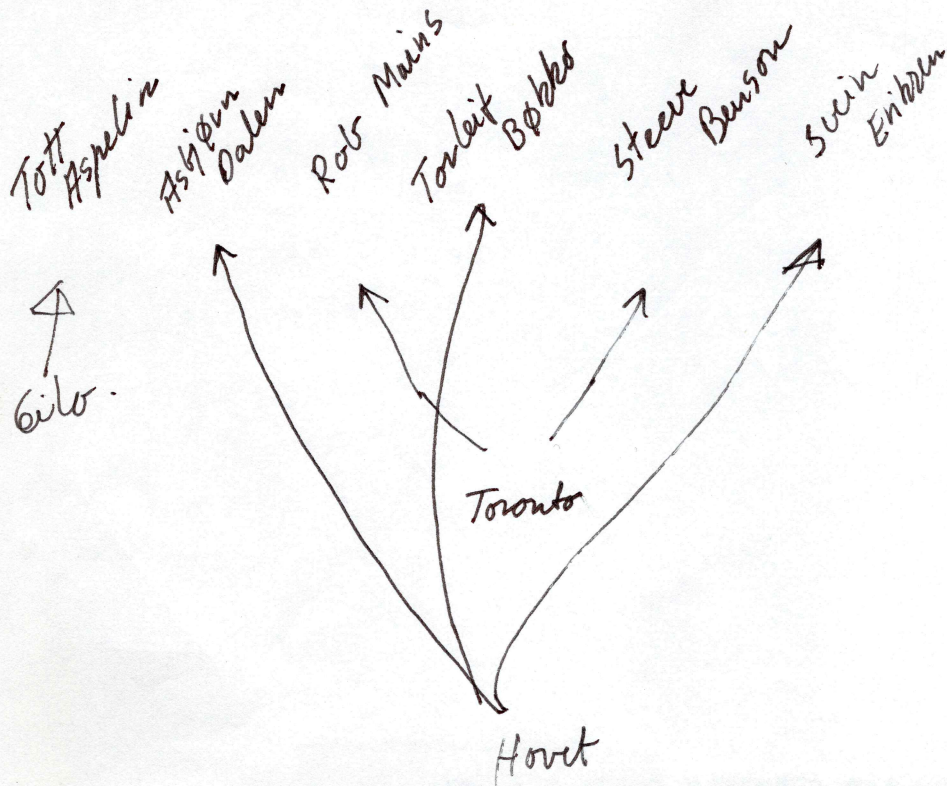 Tott
Aspelin
Asbjørn
Dalen
Rob Mains
Torleif
Bøkko
Steeve
Benson
Svein
Geilo.
Toronto
Hovet